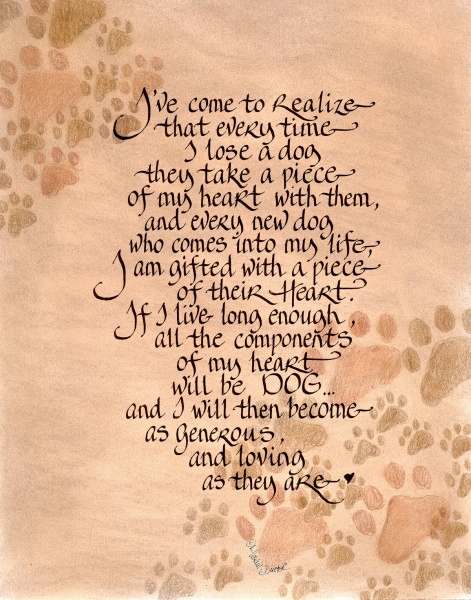 I've come to Realize
that every time
I lose a dog
they take a piece
of my heart with them,
and every new dog
who comes into my life,
I am gifted with a piece
of their Heart.
If I live long enough,
all the components
of my heart
will be DOG...
and I will then become
as generous,
and loving
as they are